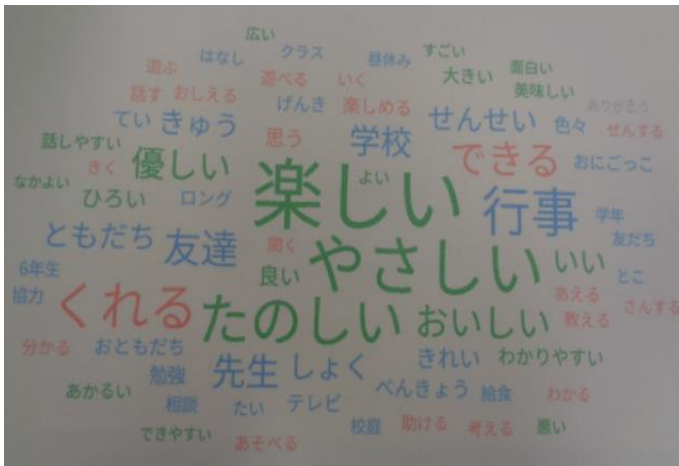 広い
はなし クラス 昼休み すごい
遊ぶ 遊べる いく 大きい 面白い
話す おしえる げんき 楽しめる 美味しい ありがとう
てい きゅう 思う 学校 せんせい 色々 せんする
話しやすい 優しい できる おにごっこ
きく よい
なかよい ひろい ロング 楽しい 行事 学年
ともだち 友達 聞く やさしい いい 友だち
6年生 良い とこ
協力 くれる たのしい おいしい あえる 教える さんする
分かる おともだち きれい わかりやすい
勉強 先生 しょく
あかるい 相談 たい テレビ べんきょう 給食 わかる
できやすい あそべる 校庭 助ける 考える 悪い